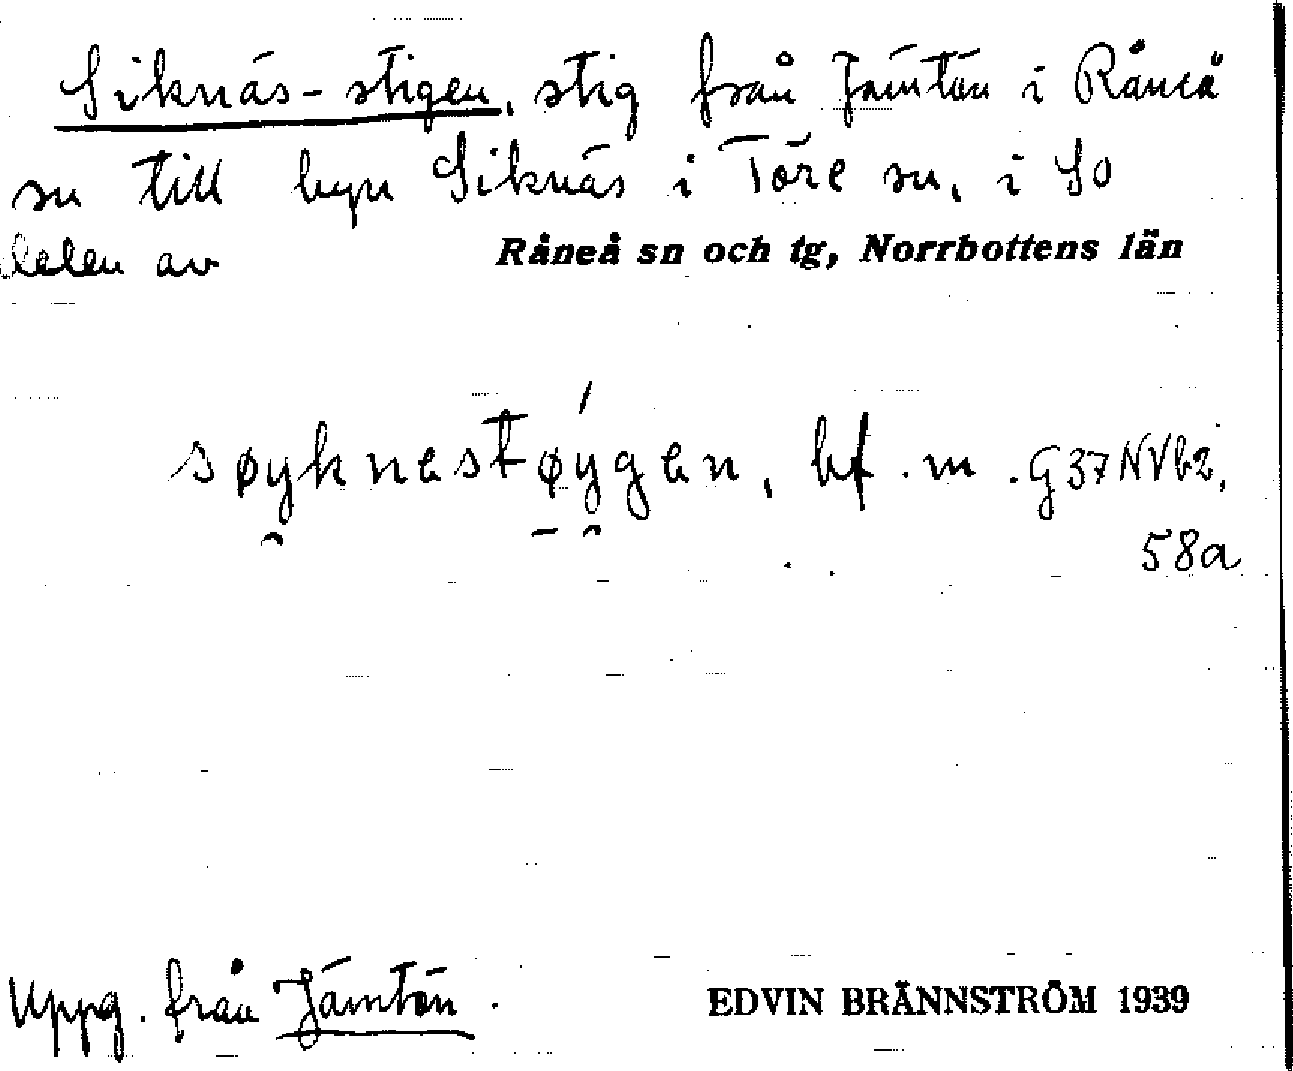 Siknäs-stigen, stig från Jämtön i Råneå
sn till byn Siknäs i Töre sn, i SO
delen av Råneå sn och tg, Norrbottens län
søyknestøýgen, bf. m. G37NVb2,
58a
Uppg. från Jämtön. EDVIN BRÄNNSTRÖM 1939